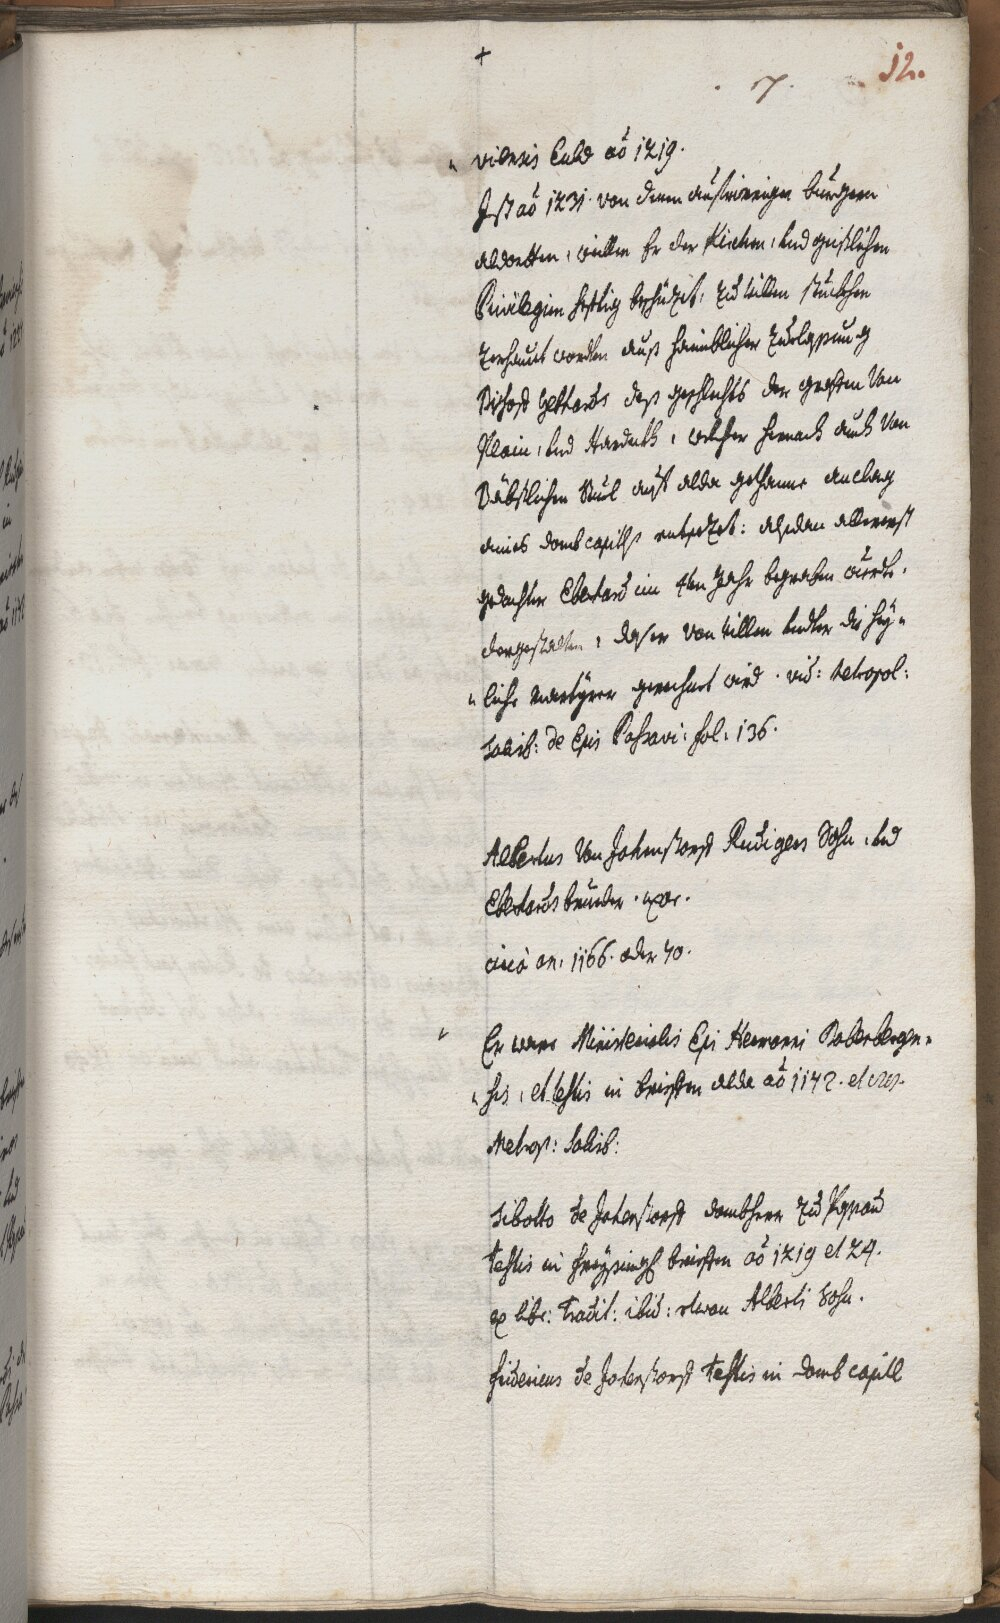 +
7.
12.
" viensis Euld aõ 1219.
Jst aõ 1231. von denen aufrierigen burgern
aldorten, willen Er der Kirchen, und geistlichen
Privilegien hefftig beschüzet, zu killen stückhen
zerhauet worden auß haimblicher zuelassung
Bischoff Gebhards deß geschlechts der grafen von
Plain, und Hardekh, welcher hernach auch von
Bäbstlichen Stuel auf alda gethanne anclag
aines dombcapitls entsezet: alsdan allererst
gedachter Eberhard im 4ten Jahr begraben würdt.
dergestalten, das er von killen under die hey-
" lige martyrer gerechnet wird. vid: Metropol:
Salisb: de Epis Passavi: fol: 136.
Albertus von Johenstorff Rudigers Sohn, und
Eberhards brueder. uxor.
circa an: 1166. oder 70.
" Er ware Ministerialis Epi Hermanni Babenbergen-
" sis, et testis in brieffen alda aõ 1172. et
Metrop: Salisb:
Sibotto de Johenstorff dombherr zu Passau
testis in freysing brieffen aõ 1219 et 24.
ex libr: Tradit: ibid: etwan Alberti Sohn.
fridericus de Johenstorff testis in domb capitl